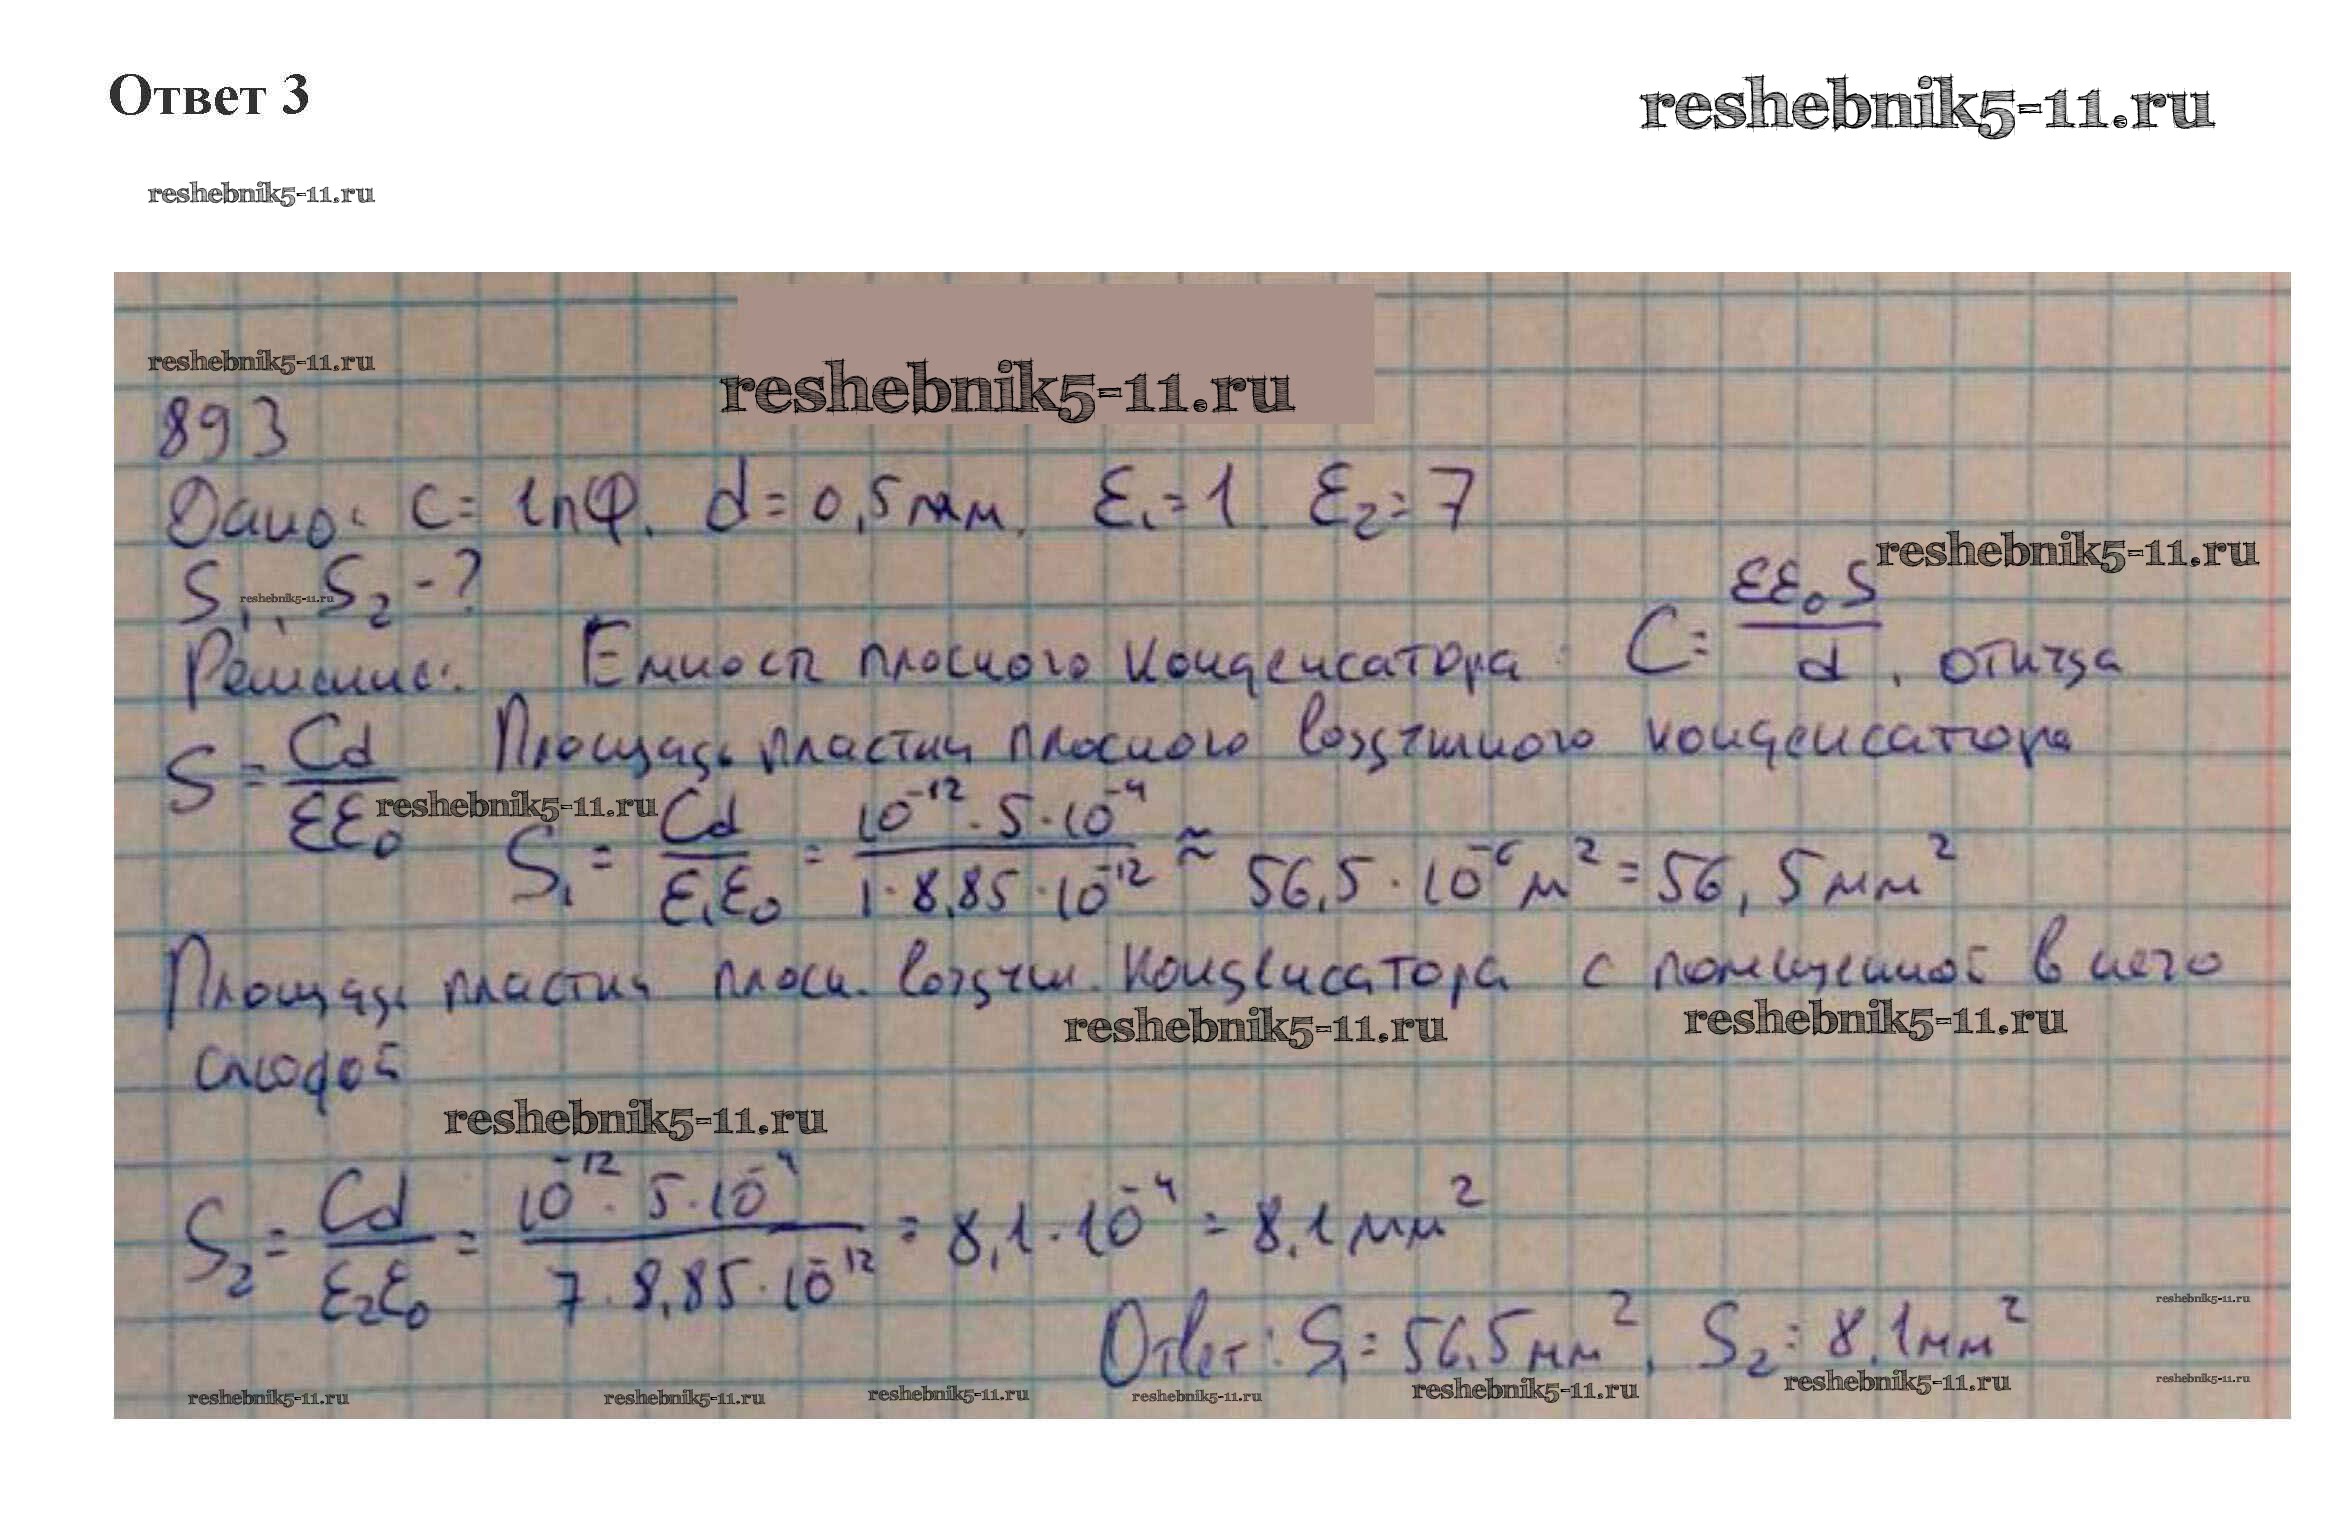 Ответ 3
reshebnik5-11.ru
reshebnik5-11.ru
reshebnik5-11.ru
reshebnik5-11.ru
893
Дано: C = 1пФ. d = 0,5 мм. ε₁ = 1 ε₂ = 7
reshebnik5-11.ru
S₁, S₂ - ?
reshebnik5-11.ru
Решение: Емкость плоского конденсатора C = εε₀S / d, откуда
S = Cd / εε₀ Площадь пластин плоского воздушного конденсатора
reshebnik5-11.ru
S₁ = Cd / ε₁ε₀ = 10⁻¹² · 5 · 10⁻⁴ / 1 · 8,85 · 10⁻¹² ≈ 56,5 · 10⁻⁶ м² = 56,5 мм²
Площадь пластин плоск. воздуш. конденсатора с помещенной в него
reshebnik5-11.ru
reshebnik5-11.ru
слюдой
reshebnik5-11.ru
S₂ = Cd / ε₂ε₀ = 10⁻¹² · 5 · 10⁻⁴ / 7 · 8,85 · 10⁻¹² = 8,1 · 10⁻⁴ = 8,1 мм²
reshebnik5-11.ru
Ответ: S₁ = 56,5 мм², S₂ = 8,1 мм²
reshebnik5-11.ru
reshebnik5-11.ru
reshebnik5-11.ru
reshebnik5-11.ru
reshebnik5-11.ru
reshebnik5-11.ru
reshebnik5-11.ru